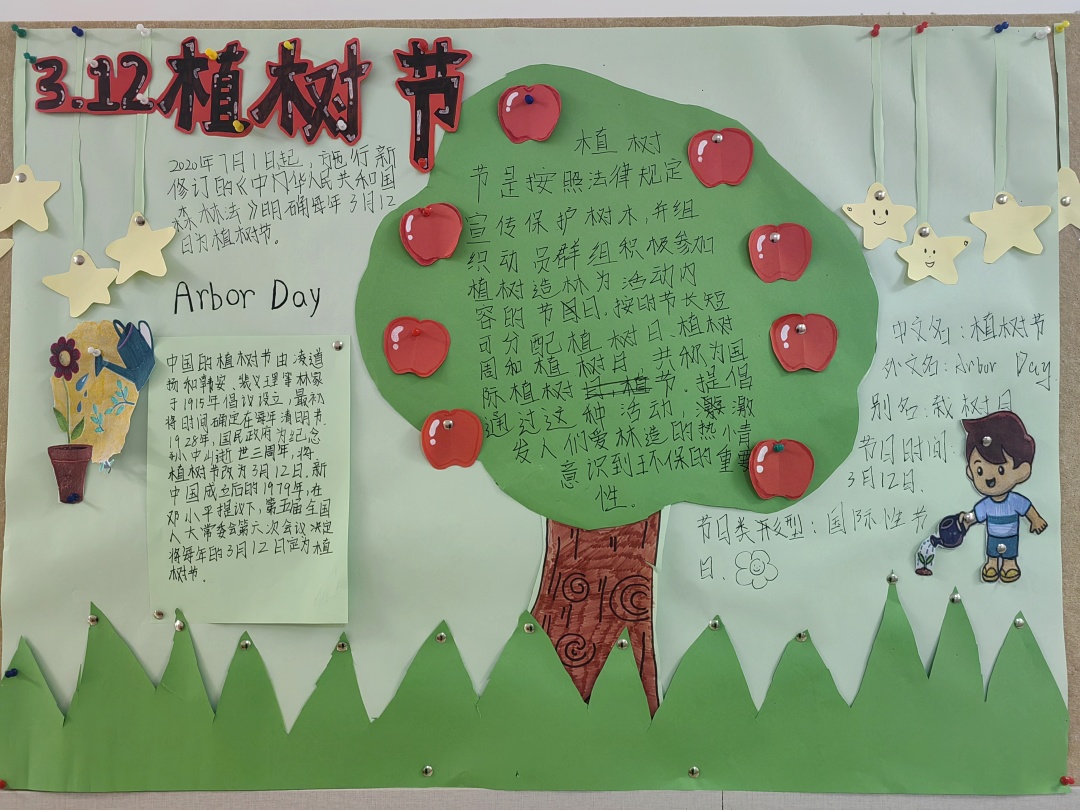 3.12植树节
2020年7月1日起，施行新
修订的《中华人民共和国
森林法》明确每年3月12
日为植树节。
Arbor Day
中国的植树节由凌道
扬和韩安、裴义理等林家
于1915年倡议设立，最初
将时间确定在每年清明节.
1928年，国民政府为纪念
孙中山逝世三周年，将
植树节改为3月12日.新
中国成立后的1979年，在
邓小平提议下，第五届全国
人大常委会第六次会议决定
将每年的3月12日定为植
树节.
植树
节是按照法律规定
宣传保护树木，并组
织动员群组积极参加
植树造林为活动内
容的节日.按时节长短
可分配植树日、植树
周和植树月，共称为国
际植树节.提倡
通过这种活动，激
发人们爱林造的热情
意识到环保的重要
性。
中文名：植树节
外文名：Arbor Day.
别名：栽树日
节日时间：
3月12日.
节日类型：国际性节
日.